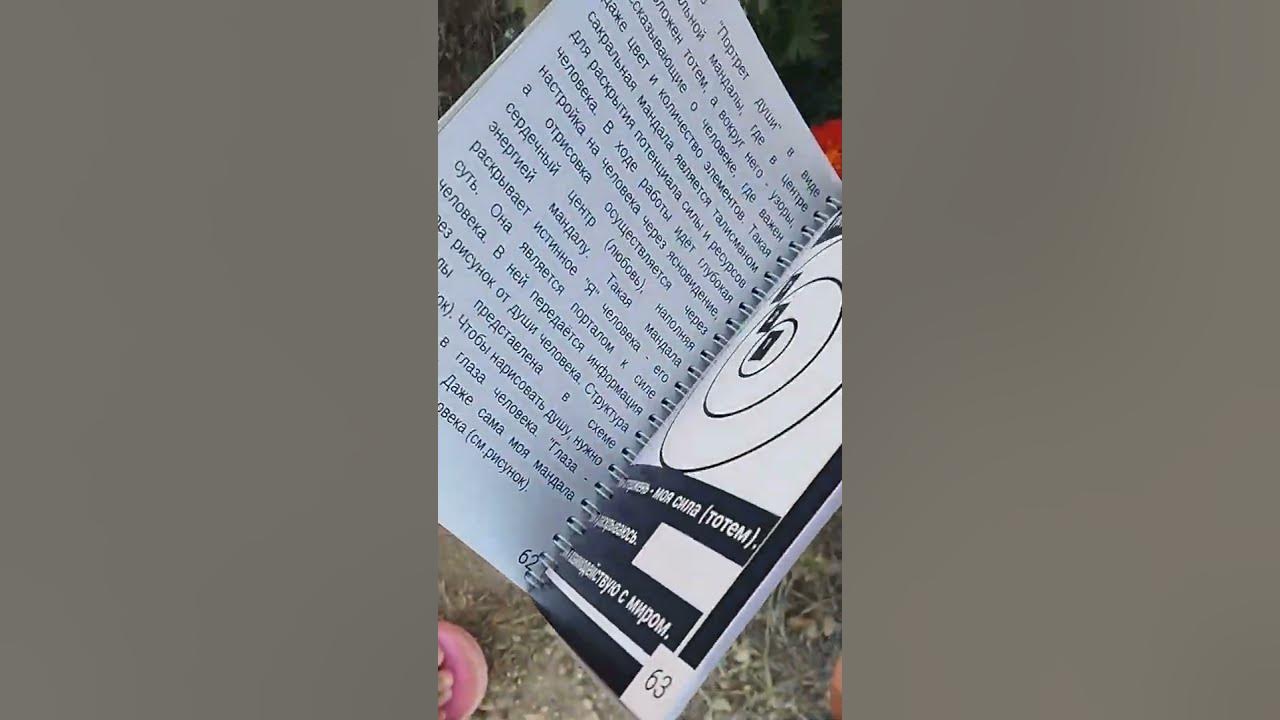 "Портрет души" в виде
мандалы, где в центре
тотем, а вокруг него - узоры,
о человеке, где важен
даже цвет и количество элементов. Такая
сакральная мандала является талисманом
для раскрытия потенциала силы и ресурсов
человека. В ходе работы идёт глубокая
настройка на человека через ясновидение,
а отрисовка осуществляется через
сердечный центр (любовь), наполняя
энергией мандалу. Такая мандала
раскрывает истинное "Я" человека - его
суть. Она является порталом к силе
человека. В ней передаётся информация
рисунок от души человека. Структура
представлена в схеме
Чтобы нарисовать душу, нужно
в глаза человека. "Глаза -
Даже сама моя мандала
(см.рисунок).
62
- моя сила (тотем).
с миром.
63